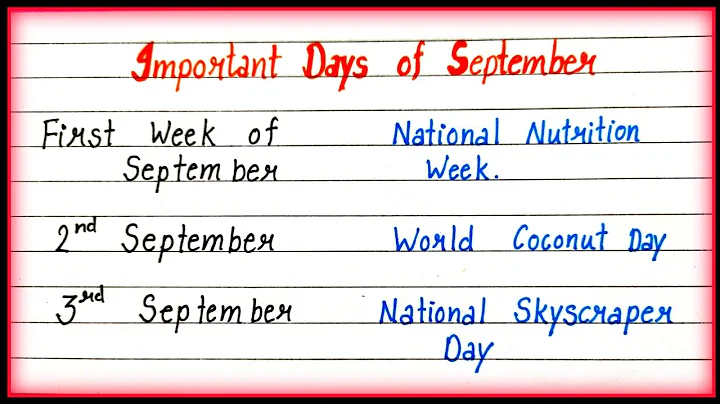 Important Days of September
First Week of National Nutrition
September Week.
2nd September World Coconut Day
3rd September National Skyscraper
Day